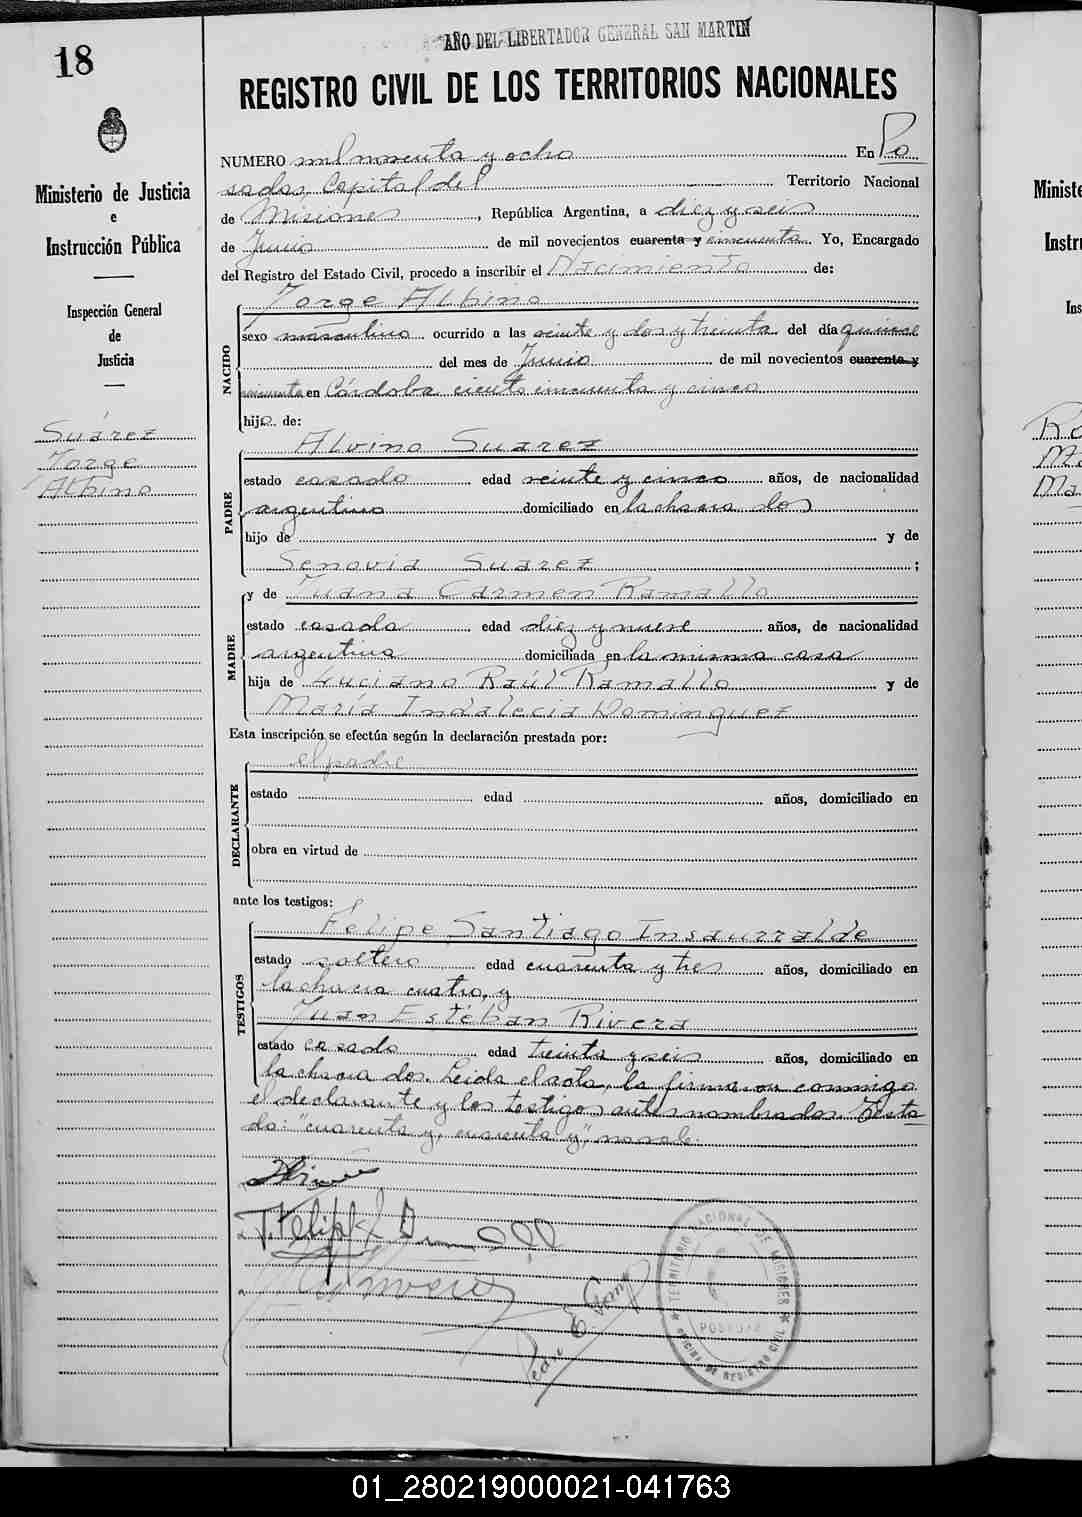 AÑO DEL LIBERTADOR GENERAL SAN MARTIN
18
REGISTRO CIVIL DE LOS TERRITORIOS NACIONALES
Ministerio de Justicia
e
Instrucción Pública
Inspección General
de
Justicia
Suárez
Jorge
Albino
NUMERO mil noventa y ocho En Po
sadas, Capital del Territorio Nacional
de Misiones, República Argentina, a diez y seis
de Junio de mil novecientos cuarenta y cincuenta. Yo, Encargado
del Registro del Estado Civil, procedo a inscribir el Nacimiento de:
NACIDO
Jorge Albino
sexo masculino ocurrido a las veinte y dos y treinta del día quince
del mes de Junio de mil novecientos cuarenta y
cincuenta en Córdoba ciento cincuenta y cinco
hijo de:
PADRE
Alvino Suarez
estado casado edad veinte y cinco años, de nacionalidad
argentino domiciliado en la chacra dos
hijo de y de
Senovia Suarez ;
MADRE
y de Juana Carmen Ramallo
estado casada edad diez y nueve años, de nacionalidad
argentina domiciliada en la misma casa
hija de Luciano Raúl Ramallo y de
María Indalecia Dominguez
Esta inscripción se efectúa según la declaración prestada por:
DECLARANTE
el padre
estado edad años, domiciliado en
obra en virtud de
ante los testigos:
TESTIGOS
Felipe Santiago Insaurralde
estado soltero edad cuarenta y tres años, domiciliado en
la chacra cuatro, y
Juan Estéban Rivera
estado casado edad treinta y seis años, domiciliado en
la chacra dos. Leida el acta, la firmaron conmigo
el declarante y los testigos antes nombrados. Testa
do: "cuarenta y, cuarenta y", no vale.
TERRITORIO NACIONAL DE MISIONES
POSADAS
OFICINA DE REGISTRO CIVIL
Ministe
Instru
Ins
Ro
Ma
01_280219000021-041763